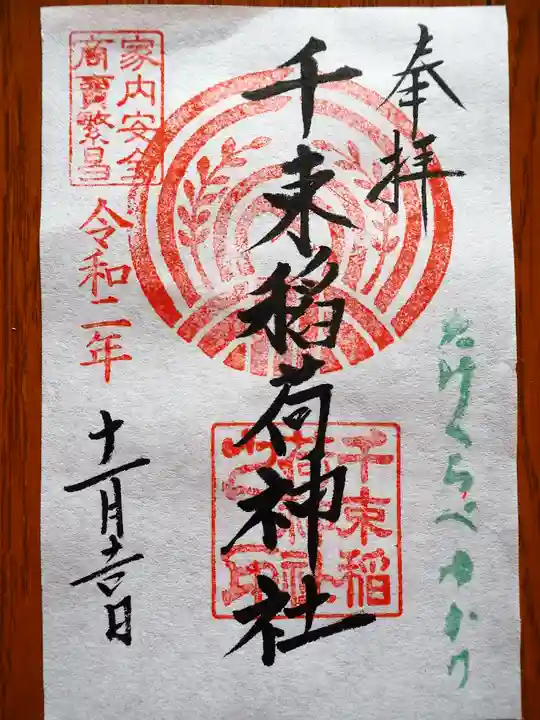 奉拝
たけくらべゆかり
千束稲荷神社
千束稲
荷神社
家内安全
商賣繁昌
令和二年
十一月吉日